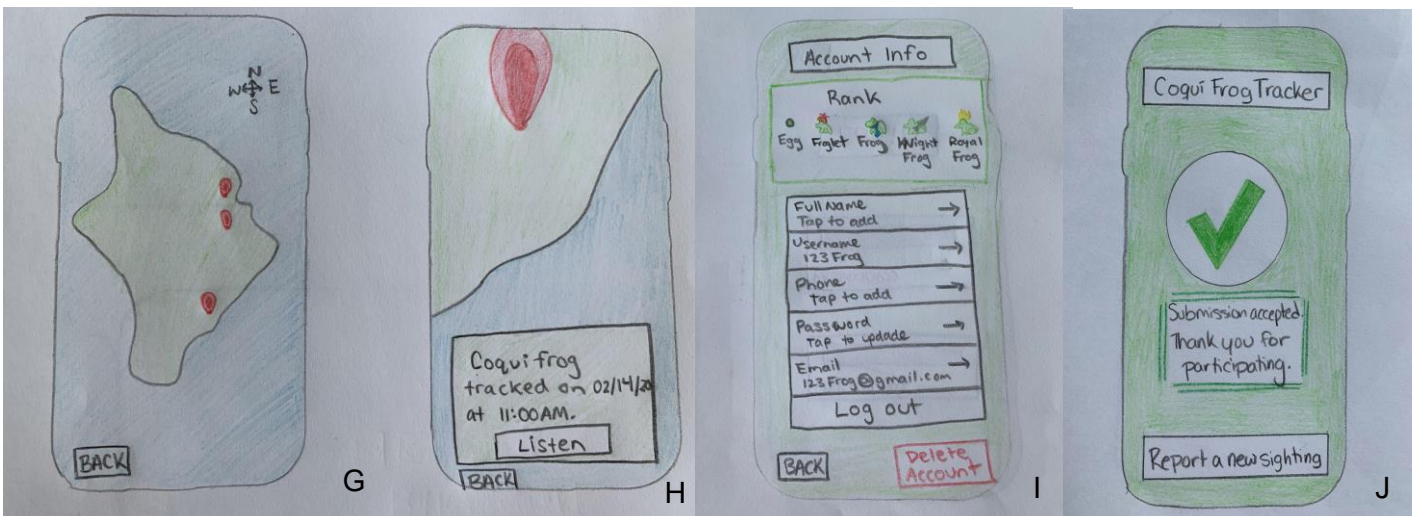 N
W E
S
BACK
G
Coqui frog
tracked on 02/14/20
at 11:00AM.
Listen
BACK
H
Account Info
Rank
Egg Froglet Frog Knight Frog Royal Frog
Full Name
Tap to add
Username
123 Frog
Phone
Tap to add
Password
Tap to updade
Email
123Frog@gmail.com
Log out
BACK
Delete
Account
I
Coqui Frog Tracker
Submission accepted.
Thank you for
participating.
Report a new sighting
J